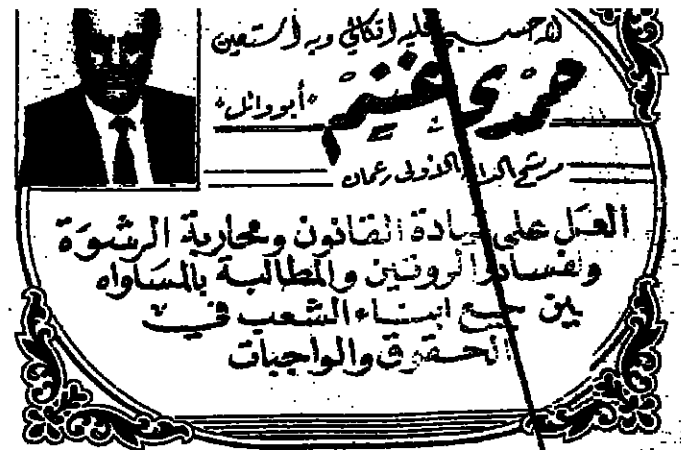 الله حسبي عليه اتكالي وبه أستعين
حمدي غنيم
"أبو وائل"
مرشح الدائرة الاولى / عمان
العمل على سيادة القانون ومحاربة الرشوة
وفساد الروتين والمطالبة بالمساواه
بين جميع ابناء الشعب في
الحقوق والواجبات